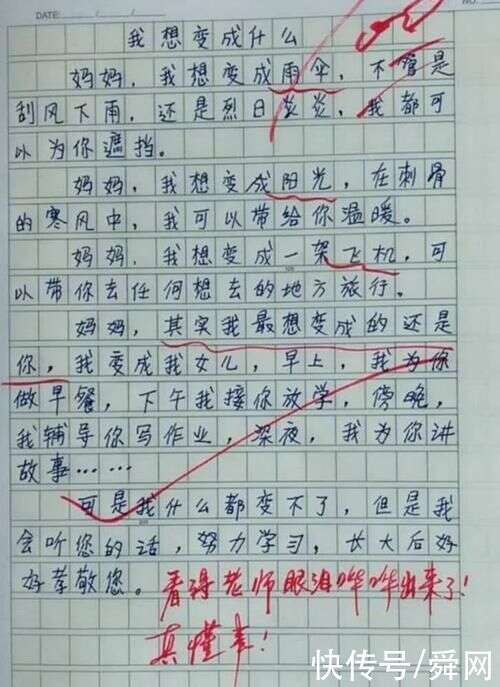 DATE: / /
NO.
我想变成什么
妈妈，我想变成雨伞，不管是
刮风下雨，还是烈日炎炎，我都可
以为你遮挡。
妈妈，我想变成阳光，在刺骨
的寒风中，我可以带给你温暖。
妈妈，我想变成一架飞机，可
以带你去任何想去的地方旅行。
妈妈，其实我最想变成的还是
你，我变成我女儿，早上，我为你
做早餐，下午我接你放学，傍晚，
我辅导你写作业，深夜，我为你讲
故事……
可是我什么都变不了，但是我
会听您的话，努力学习，长大后好
好孝敬您。看得老师眼泪哗哗出来了！
真懂事！
快传号/舜网